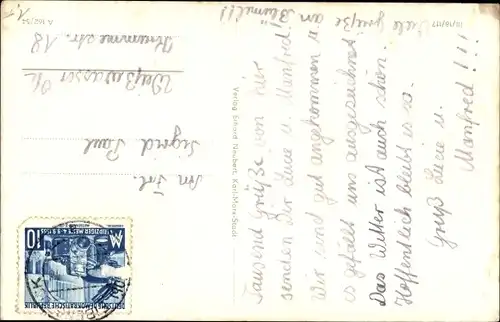 Tausend Grüße von hier
senden Dir Lucie u. Manfred.
Wir sind gut angekommen u.
es gefällt uns ausgezeichnet
Das Wetter ist auch schön.
Hoffentlich bleibt es so.
Gruß Lucie u.
Manfred!!!
Viele Grüße an
Verlag Erhard Neubert, Karl-Marx-Stadt
An Frl.
Sigrid Paul
Weißwasser O/L
Krummestr. 18
A 162/54
10
LEIPZIGER MESSE 4.-9.9.1955
DEUTSCHE DEMOKRATISCHE REPUBLIK